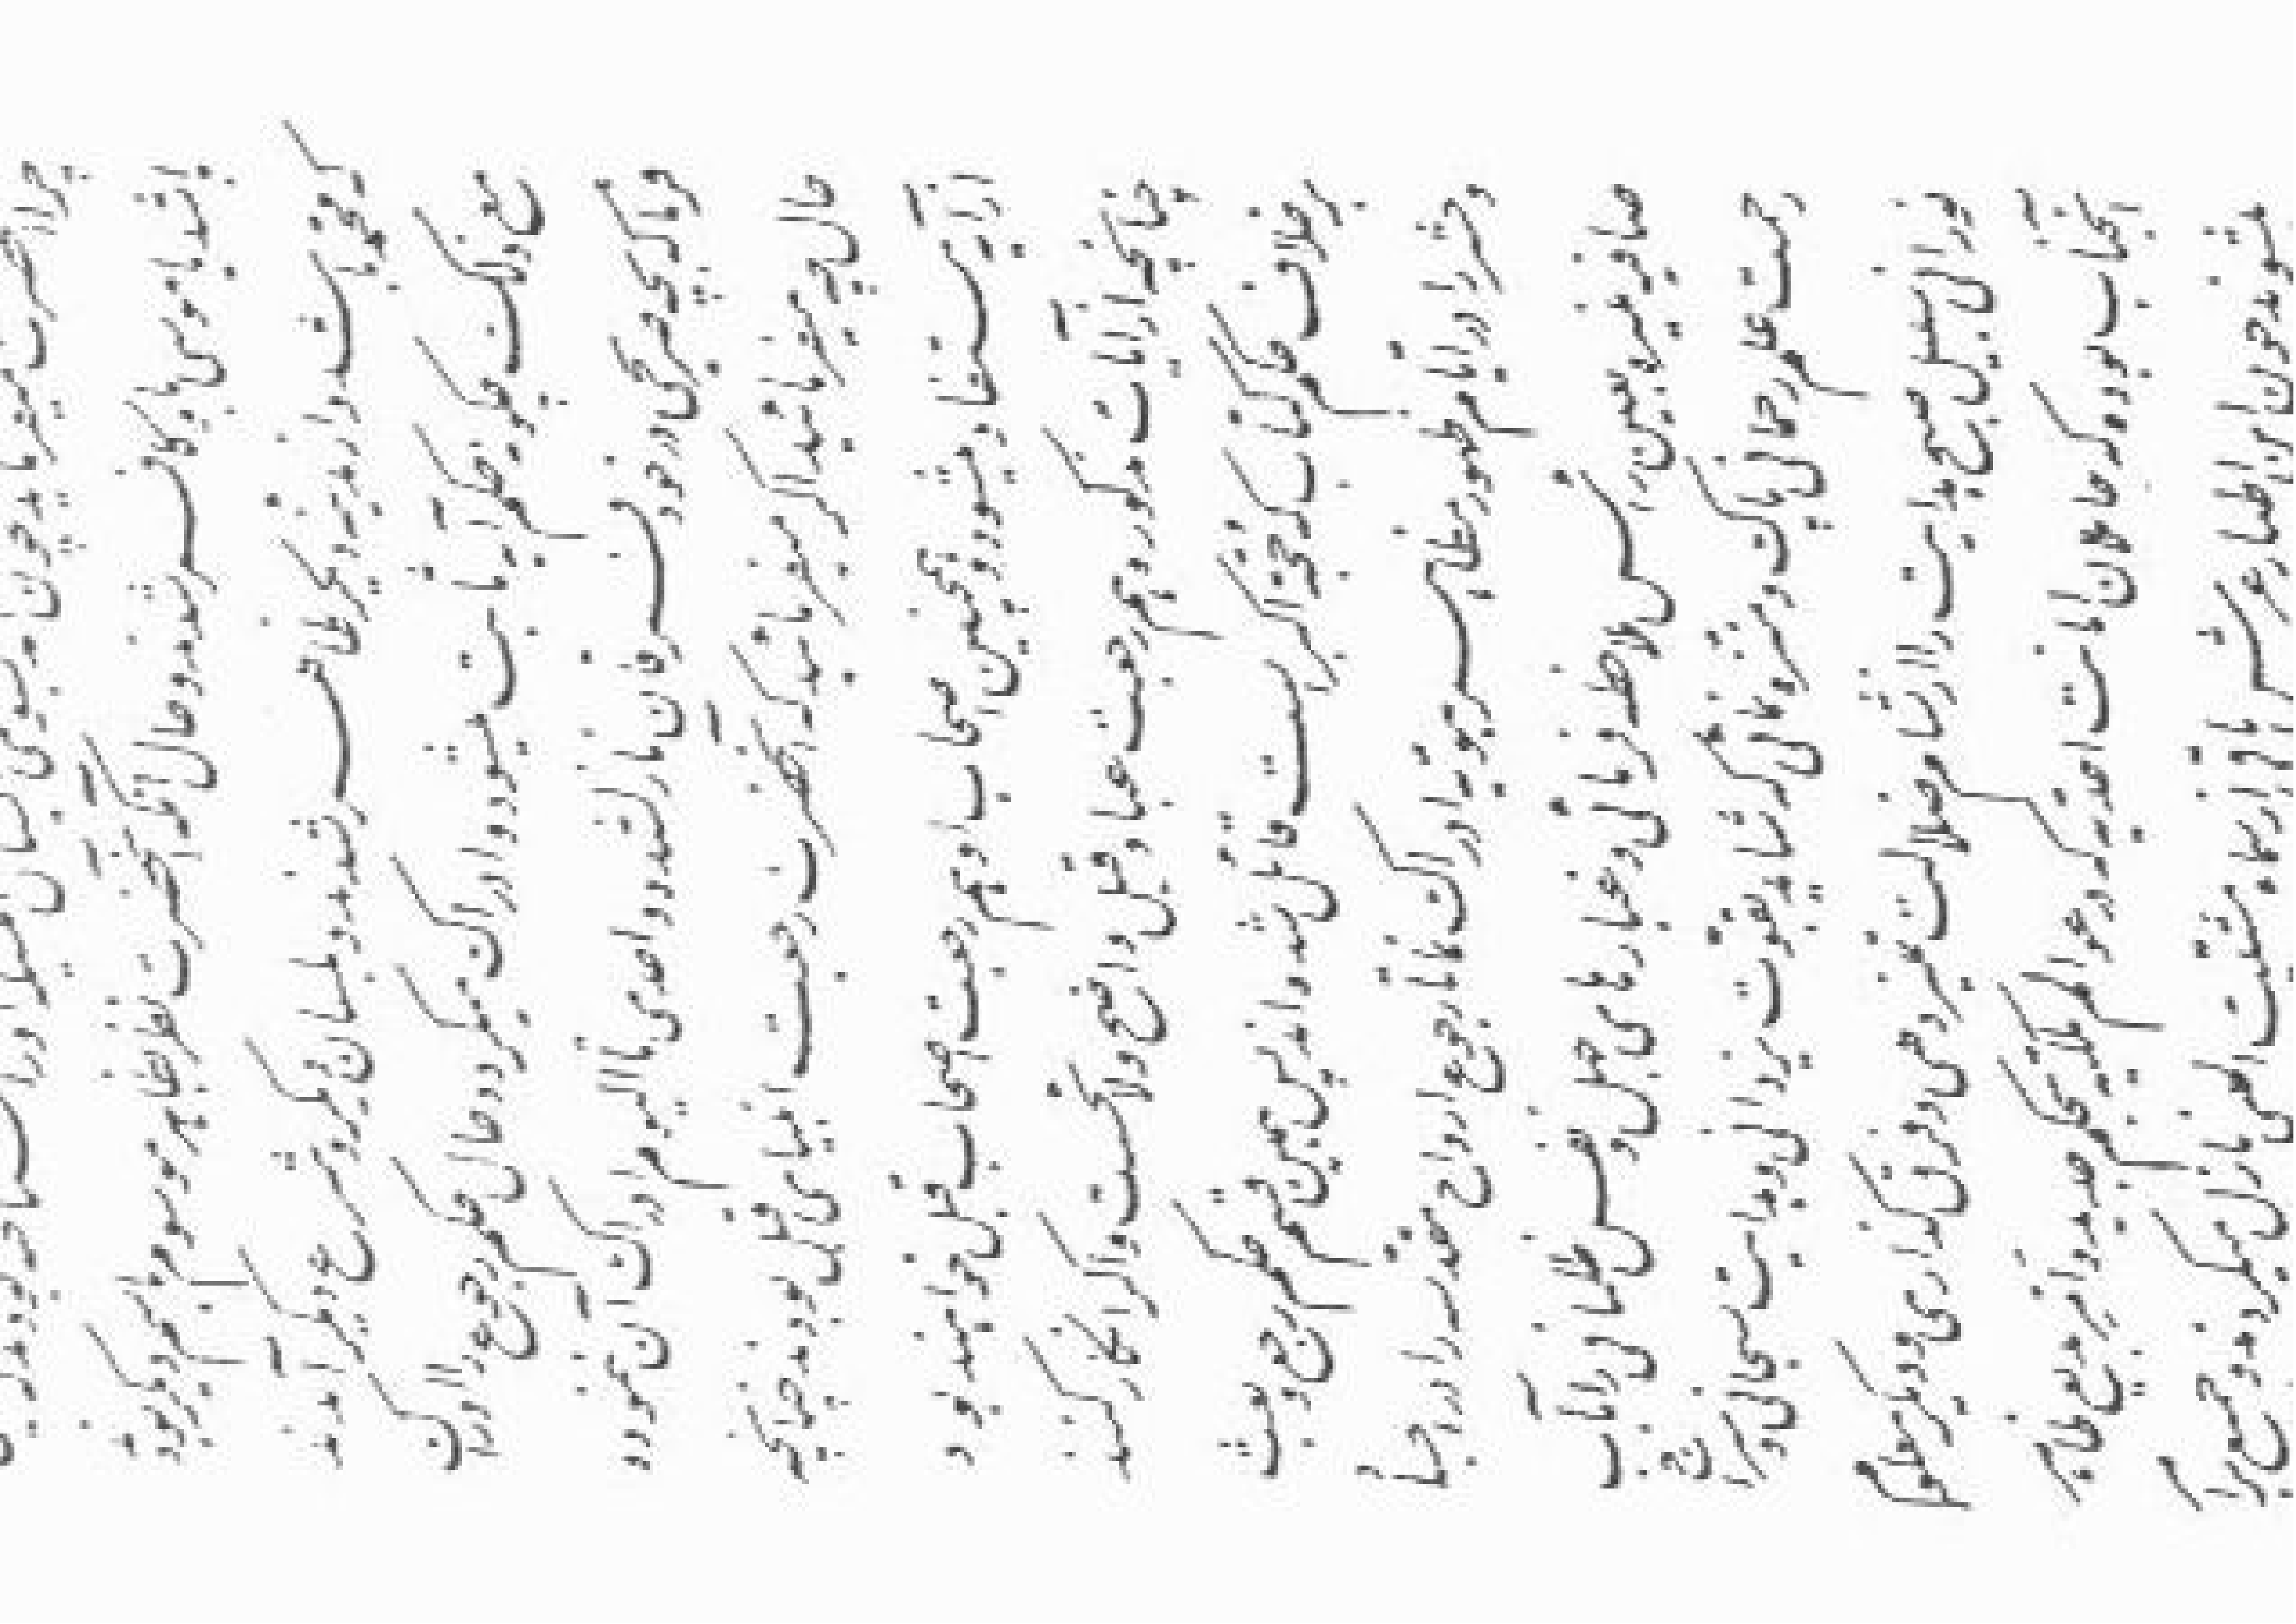 شدند و حال آنکه آنحضرت نظر بظاهر موسوم بمحمد
ظاهر شدند و بلسان دیگر و شرع دیگر آمدند
مع ذلک چگونه حکم آیه ثابت میشود و ادراک میگردد حال حکم رجوع را ادراک
فرما که بچه صریحی در خود فرقان نازل شده و احدی تا الیوم ادراک آن ننموده
حال چه میفرمائید اگر میفرمائید که آنحضرت رجعت انبیای قبل بودند چنانچه
از آیه مستفاد میشود و همچنین اصحاب او هم رجعت اصحاب قبل خواهند بود
چنانچه از آیات مذکوره هم رجعت عباد قبل واضح و لائحست و اگر انکار کنند
بر خلاف حکم کتاب که حجّت اکبر است قائل شده‌اند پس همین قسم حکم رجع و بعث
و حشر را در ایام ظهور مظاهر هویّه ادراک نما تا رجوع ارواح مقدسه را در اجساد
صافیه منیره بعین رأس ملاحظه فرمائی و غبارهای جهل و نفس ظلمانی را بآب
رحمت علم رحمانی پاک و منزه نمائی که شاید بقوّت یزدانی و هدایت سبحانی و سراج
نورانی سبیل صبح هدایت را از شام ضلالت تمیز دهی و فرق گذاری و دیگر معلوم
آنجناب بوده که حاملان امانت احدیه که در عوالم ملکیّه بحکم جدید و امر بدیع ظاهر
میشوند چون این اطیار عرش باقی از سماء مشیّت الهی نازل میگردند و جمیع بر امر